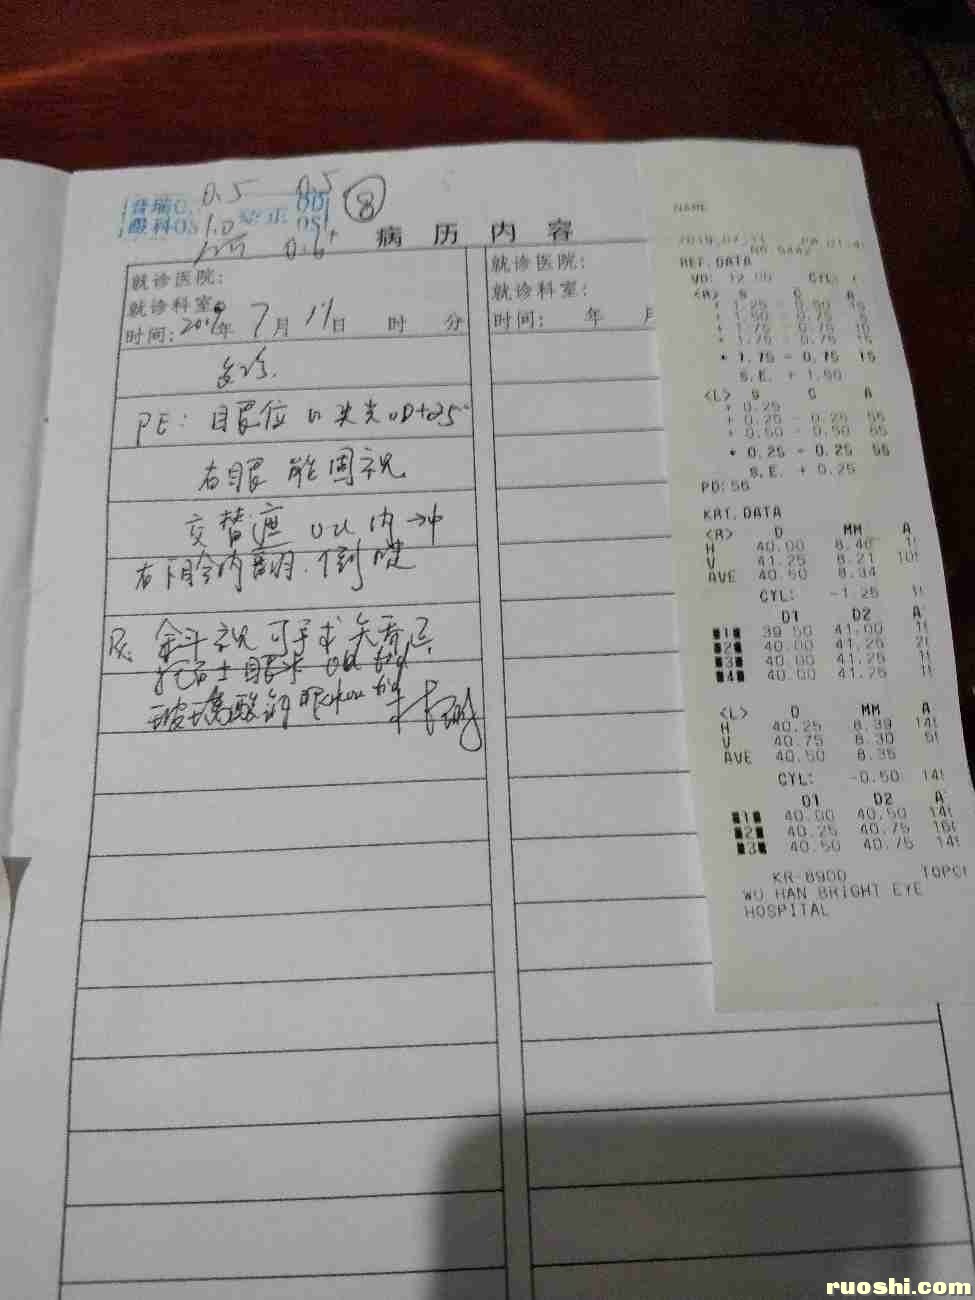 0.5 0.5 8
普瑞O. 矫正 OD
眼科OS 1.0 OS
0.6+
病 历 内 容
就诊医院:
就诊科室:
时间: 2019年 7月 11日 时 分
复诊.
PE: 眼位 映光 OD+25°
右眼 能固视
交替遮 OU 内→中
右下睑内翻 倒睫
R. 斜视 可手术
眼水 OU tid
玻璃酸钠 眼 tid
就诊医院:
就诊科室:
时间: 年 月
NAME
2019.07.11
REF.DATA
VD: 12.00 CYL:
<R> S C A
+ 1.25 - 0.50 15
+ 1.50 - 0.75
+ 1.75 - 0.75 15
+ 1.75 - 0.75 15
* 1.75 - 0.75 15
S.E. + 1.50
<L> S C A
+ 0.25
+ 0.25 - 0.25 55
+ 0.50 - 0.50 55
* 0.25 - 0.25 55
S.E. + 0.25
PD: 56
KRT.DATA
<R> D MM A
H 40.00 8.46
V 41.25 8.21
AVE 40.50 8.34
CYL: -1.25
D1 D2 A
1 39.50 41.00
2 40.00 41.25
3 40.00 41.25
4 40.00 41.25
<L> D MM A
H 40.25 8.39
V 40.75 8.30
AVE 40.50 8.35
CYL: -0.50
D1 D2 A
1 40.00 40.50
2 40.25 40.75
3 40.50 40.75
KR-8900 TOPC
WU HAN BRIGHT EYE
HOSPITAL
ruoshi.com